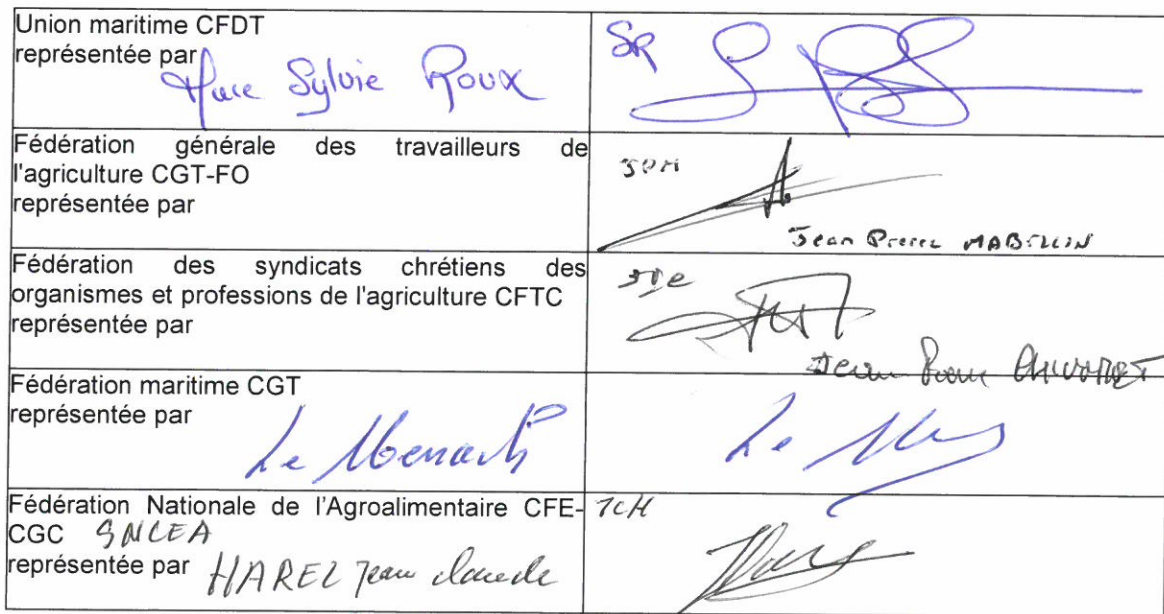 Union maritime CFDT
représentée par
Sylvie Roux
SR
Fédération générale des travailleurs de
l'agriculture CGT-FO
représentée par
JPM
Jean Pierre MABILLIN
Fédération des syndicats chrétiens des
organismes et professions de l'agriculture CFTC
représentée par
Jean
Fédération maritime CGT
représentée par
Le
Le
Fédération Nationale de l'Agroalimentaire CFE-
CGC SNCEA
représentée par HAREL Jean claude
JCH